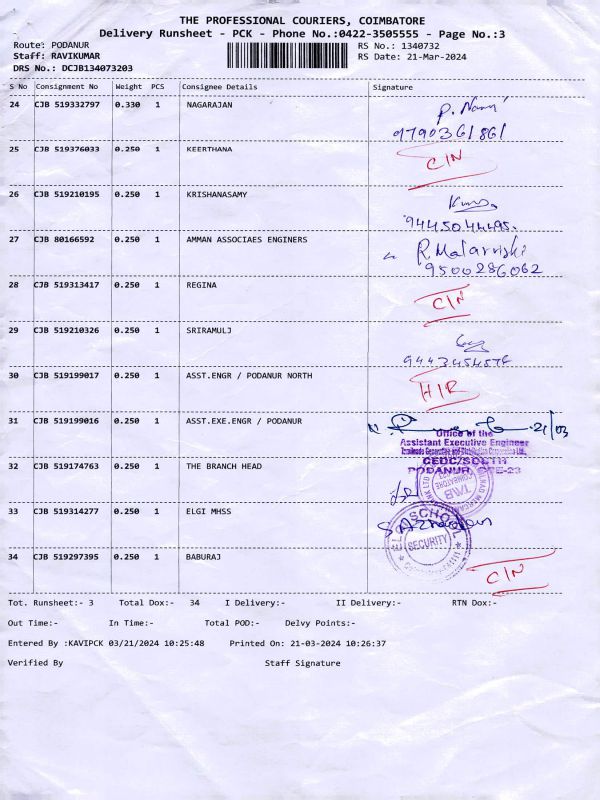 THE PROFESSIONAL COURIERS, COIMBATORE
Delivery Runsheet - PCK - Phone No.:0422-3505555 - Page No.:3
Route: PODANUR
Staff: RAVIKUMAR
DRS No.: DCJB134073203
RS No.: 1340732
RS Date: 21-Mar-2024
S No Consignment No Weight PCS Consignee Details Signature
24 CJB 519332797 0.330 1 NAGARAJAN
9790361861
25 CJB 519376033 0.250 1 KEERTHANA CIN
26 CJB 519210195 0.250 1 KRISHANASAMY
9445044495.
27 CJB 80166592 0.250 1 AMMAN ASSOCIAES ENGINERS
9500286062
28 CJB 519313417 0.250 1 REGINA CIN
29 CJB 519210326 0.250 1 SRIRAMULJ
30 CJB 519199017 0.250 1 ASST.ENGR / PODANUR NORTH HIR
31 CJB 519199016 0.250 1 ASST.EXE.ENGR / PODANUR 21/03
Office of the
Assistant Executive Engineer
CEDC/SOUTH
PODANUR, CBE-23
32 CJB 519174763 0.250 1 THE BRANCH HEAD
33 CJB 519314277 0.250 1 ELGI MHSS
SCHOOL
SECURITY
34 CJB 519297395 0.250 1 BABURAJ CIN
Tot. Runsheet:- 3 Total Dox:- 34 I Delivery:- II Delivery:- RTN Dox:-
Out Time:- In Time:- Total POD:- Delvy Points:-
Entered By :KAVIPCK 03/21/2024 10:25:48 Printed On: 21-03-2024 10:26:37
Verified By Staff Signature